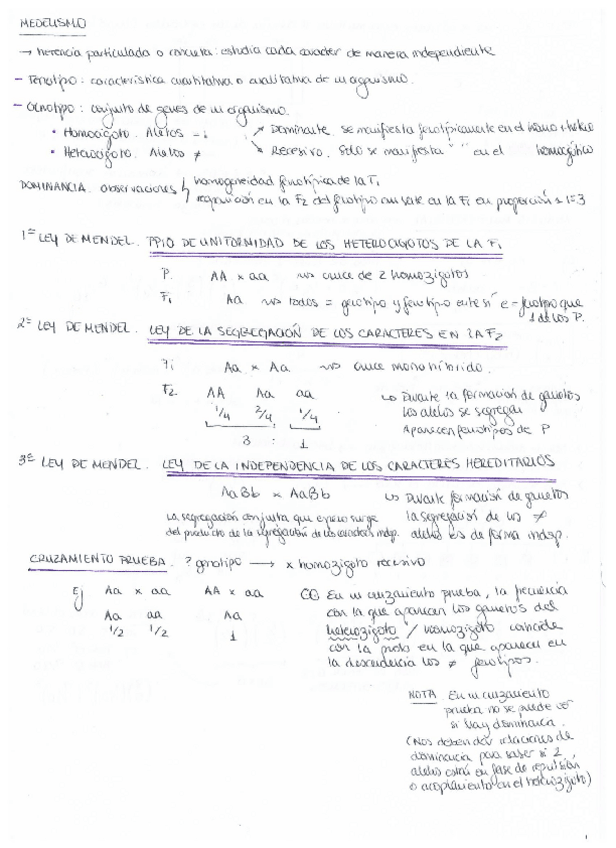 MEDELISMO
→ herencia particulada o concreta: estudia cada caracter de manera independiente
- Fenotipo: característica cuantitativa o cualitativa de un organismo.
- Genotipo: conjunto de genes de un organismo.
• Homocigoto. Alelos = ↗ Dominante se manifiesta fenotípicamente en el homo + hetero
• Heterocigoto. Alelos ≠ ↘ Recesivo. Solo se manifiesta " " en el homocigótico
DOMINANCIA. observaciones homogeneidad fenotípica de la F1
reaparición en la F2 del fenotipo en la F1 en proporción 1:3
1ª LEY DE MENDEL. PPIO DE UNIFORMIDAD DE LOS HETEROCIGOTOS DE LA F1
P. AA x aa → cruce de 2 homozigotos
F1 Aa → todos = genotipo y fenotipo entre sí e = fenotipo que
1 de los P.
2ª LEY DE MENDEL. LEY DE LA SEGREGACIÓN DE LOS CARACTERES EN LA F2
F1 Aa x Aa → cruce monohíbrido.
F2 AA Aa aa ↳ Durante la formación de gametos
1/4 2/4 1/4 los alelos se segregan
3 : 1 Aparecen fenotipos de P
3ª LEY DE MENDEL. LEY DE LA INDEPENDENCIA DE LOS CARACTERES HEREDITARIOS
AaBb x AaBb ↳ Durante formación de gametos
La segregación conjunta que surge la segregación de los ≠
del producto de la segregación de los caracteres indep. alelos es de forma indep.
CRUZAMIENTO PRUEBA. ? genotipo → x homozigoto recesivo
Ej Aa x aa AA x aa En un cruzamiento prueba, la frecuencia
Aa aa Aa con la que aparecen los gametos del
1/2 1/2 1 heterozigoto / homozigoto coincide
con la en la que aparecen en
la descendencia los ≠ fenotipos.
NOTA. En un cruzamiento
prueba no se puede ver
si hay dominancia.
(Nos deben dar relaciones de
dominancia para saber si 2
alelos están en fase de repulsión
o acoplamiento en el heterozigoto)